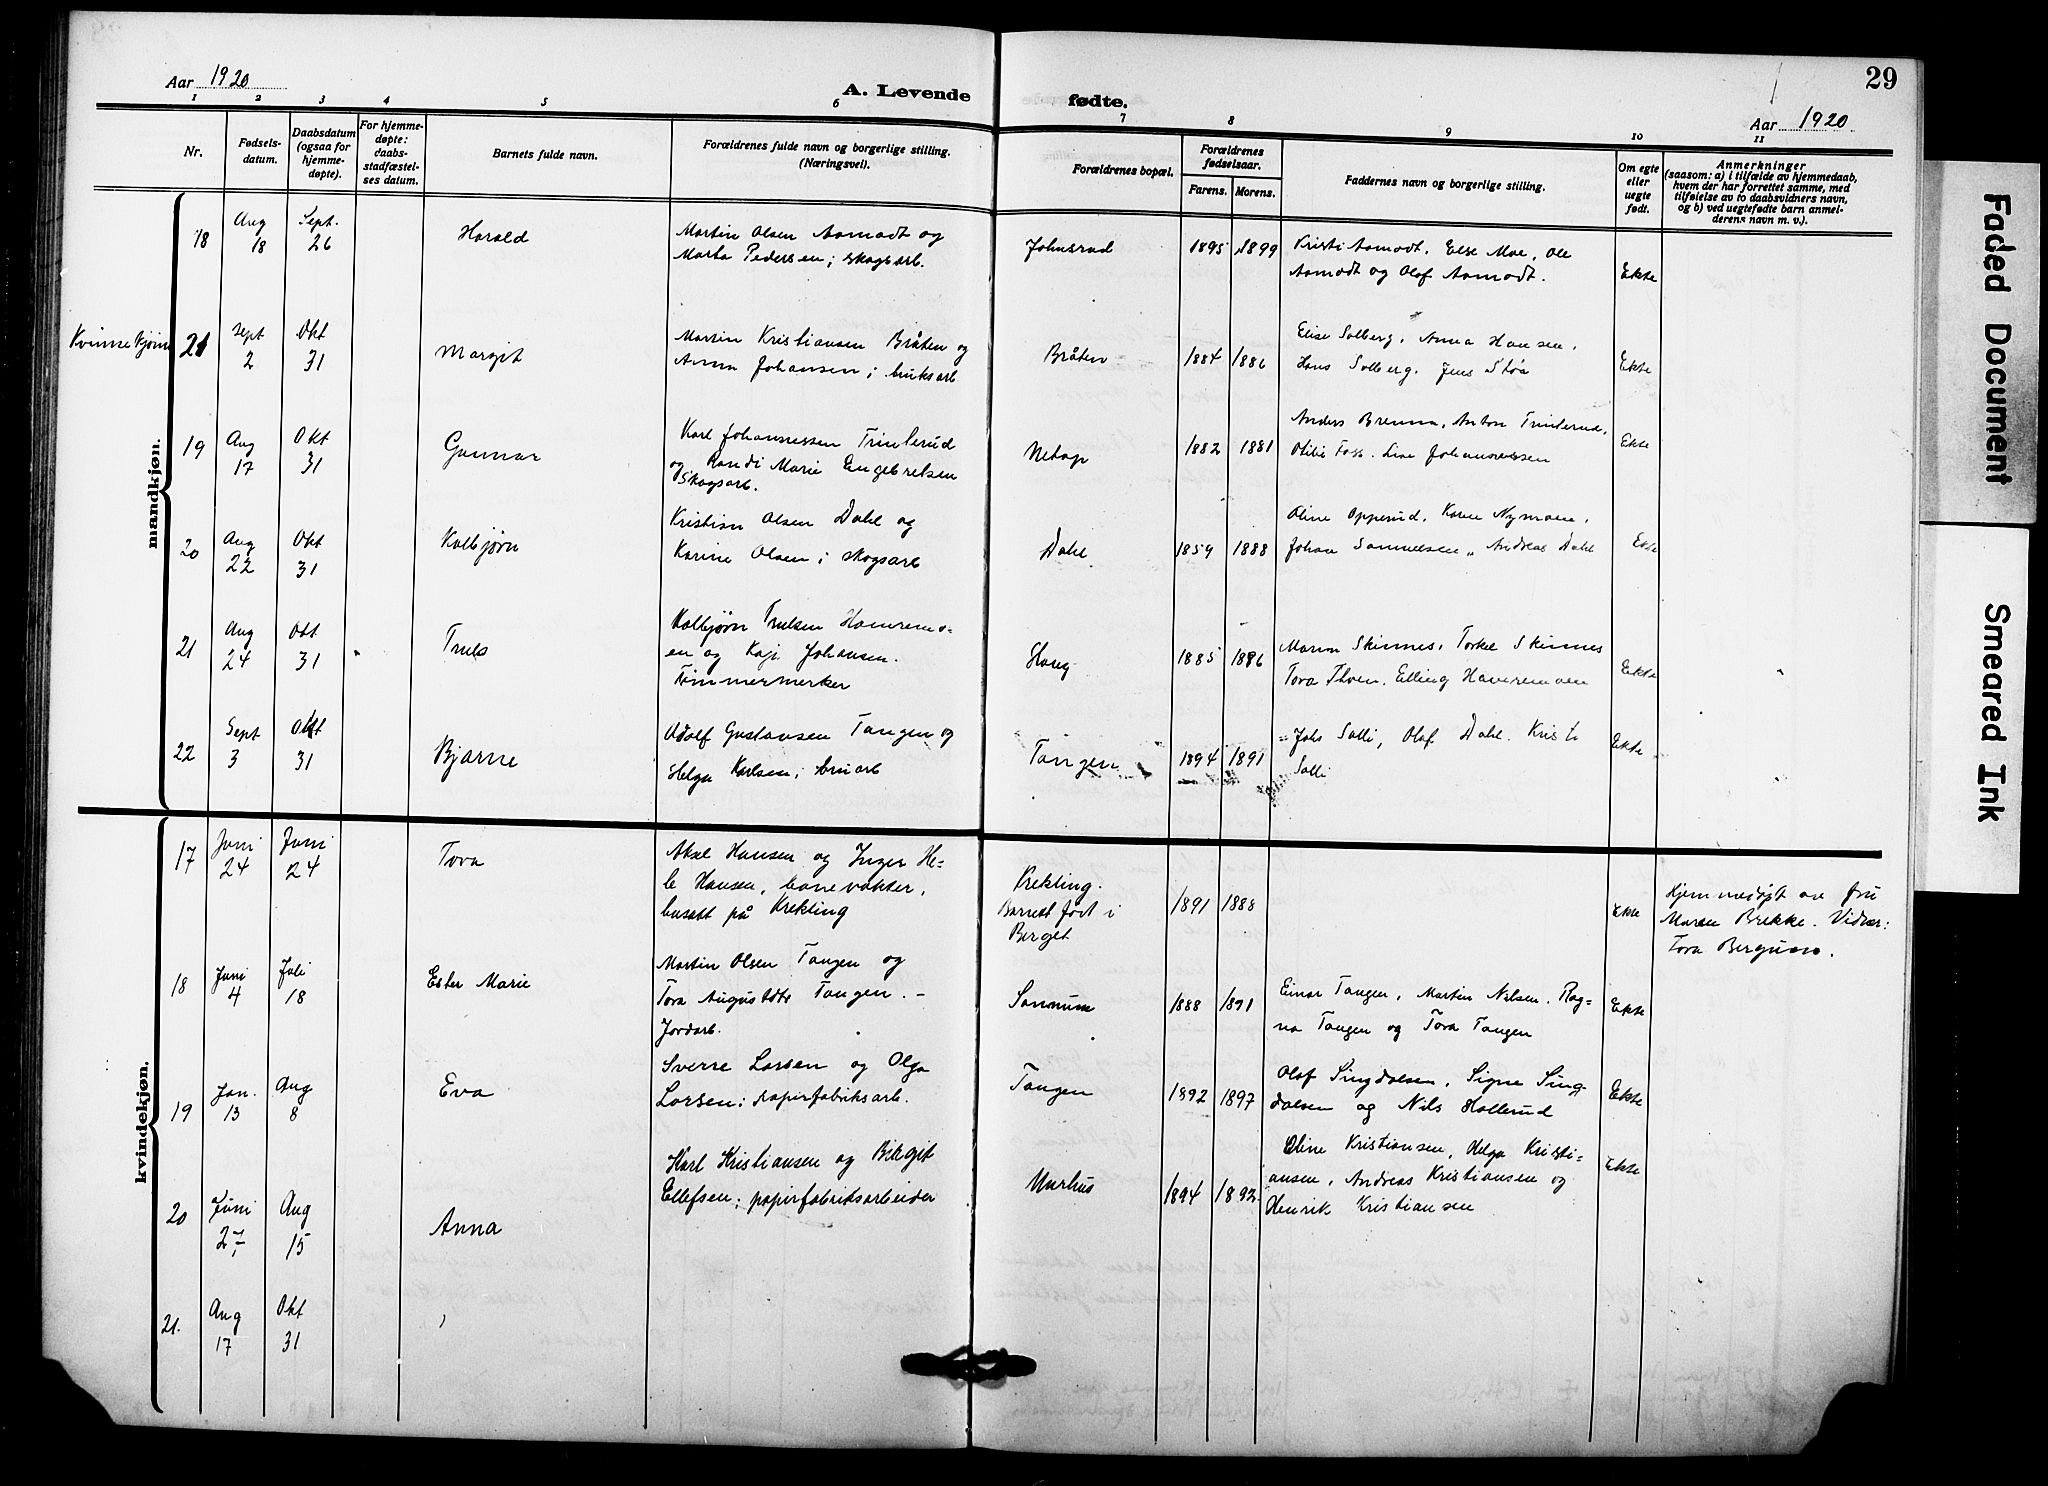 Aar 1920
A. Levende
fødte.
29
Aar 1920
1 2 3 4 5 6 7 8 9 10 11
Nr.
Fødsels-
datum.
Daabsdatum
(ogsaa for
hjemme-
døpte).
For hjemme-
døpte:
daabs-
stadfæstel-
ses datum.
Barnets fulde navn.
Forældrenes fulde navn og borgerlige stilling.
(Næringsvei).
Forældrenes bopæl.
Forældrenes
fødselsaar.
Farens. Morens.
Faddernes navn og borgerlige stilling.
Om egte
eller
uegte
født.
Anmerkninger
(saasom: a) i tilfælde av hjemmedaab,
hvem der har forrettet samme, med
tilføielse av to daabsvidners navn,
og b) ved uegtefødte barn anmel-
derens navn m. v.).
mandkjøn.
18
Aug
18
Sept.
26
Harald
Martin Olsen Aamodt og
Marta Pedersen; skogsarb.
Johnsrud
1895 1899
Kristi Aamodt. Else Moe, Ole
Aamodt og Olaf Aamodt.
Ekte
Kvinne kjønn
21
Sept
2
Okt
31
Margit
Martin Kristiansen Bråten og
Anna Johansen; bruksarb
Bråten
1884 1886
Elise Solberg, Anna Hansen,
Hans Solberg. Jens Støa
Ekte
19
Aug
17
Okt
31
Gunnar
Karl Johannessen Trinterud
og Randi Marie Engebretsen
Skogsarb.
Netop
1882 1881
Anders Brenna, Anton Trinterud,
Otilie Foss. Lise Johannessen
Ekte
20
Aug
22
Okt
31
Kolbjørn
Kristian Olsen Dahl og
Karine Olsen; skogsarb
Dahl
1859 1888
Oline Opperud, Karen Nymoen,
Johan Samuelsen, Andreas Dahl
Ekte
21
Aug
24
Okt
31
Truls
Kolbjørn Trulsen Havremo-
en og Kaja Johansen.
Tømmermerker
Haug
1885 1886
Maren Skinnes, Torkel Skinnes
Tora Floen, Elling Havremoen
Ekte
22
Sept
3
Okt
31
Bjarne
Adolf Gustavsen Tangen og
Helga Karlsen; bruarb
Tangen
1894 1891
Johs Solli, Olaf Dahl. Kristi
Solli
Ekte
kvindekjøn.
17
Juni
24
Juni
24
Tora
Aksel Hansen og Inger He-
le Hansen, banevakter,
bosatt på Krekling
Krekling.
Barnet født i
Berget
1891 1888
Ekte
Hjemmedøpt av fru
Maren Brekke. Vidner:
Tora Bergum.
18
Juni
4
Juli
18
Ester Marie
Martin Olsen Tangen og
Tora Augustdtr Tangen. –
Jordarb.
Sannum
1888 1891
Einar Tangen, Martin Nilsen. Rag-
na Tangen og Tora Tangen
Ekte
19
Jan.
13
Aug
8
Eva
Sverre Larsen og Olga
Larsen; papirfabriksarb.
Tangen
1892 1897
Olaf Singdalsen, Signe Sing-
dalsen og Nils Hollerud
Ekte
20
Juni
27
Aug
15
Anna
Karl Kristiansen og Birgit
Ellefsen; papirfabriksarbeider
Aarhus
1894 1892
Eline Kristiansen, Helga Kristi-
ansen, Andreas Kristiansen og
Henrik Kristiansen
Ekte
21.
Aug
17
Okt
31
Faded Document
Smeared Ink